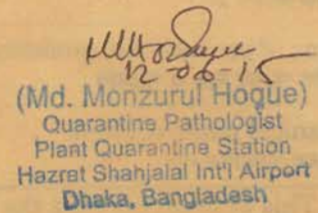 12-06-15
(Md. Monzurul Hoque)
Quarantine Pathologist
Plant Quarantine Station
Hazrat Shahjalal Int'l Airport
Dhaka, Bangladesh